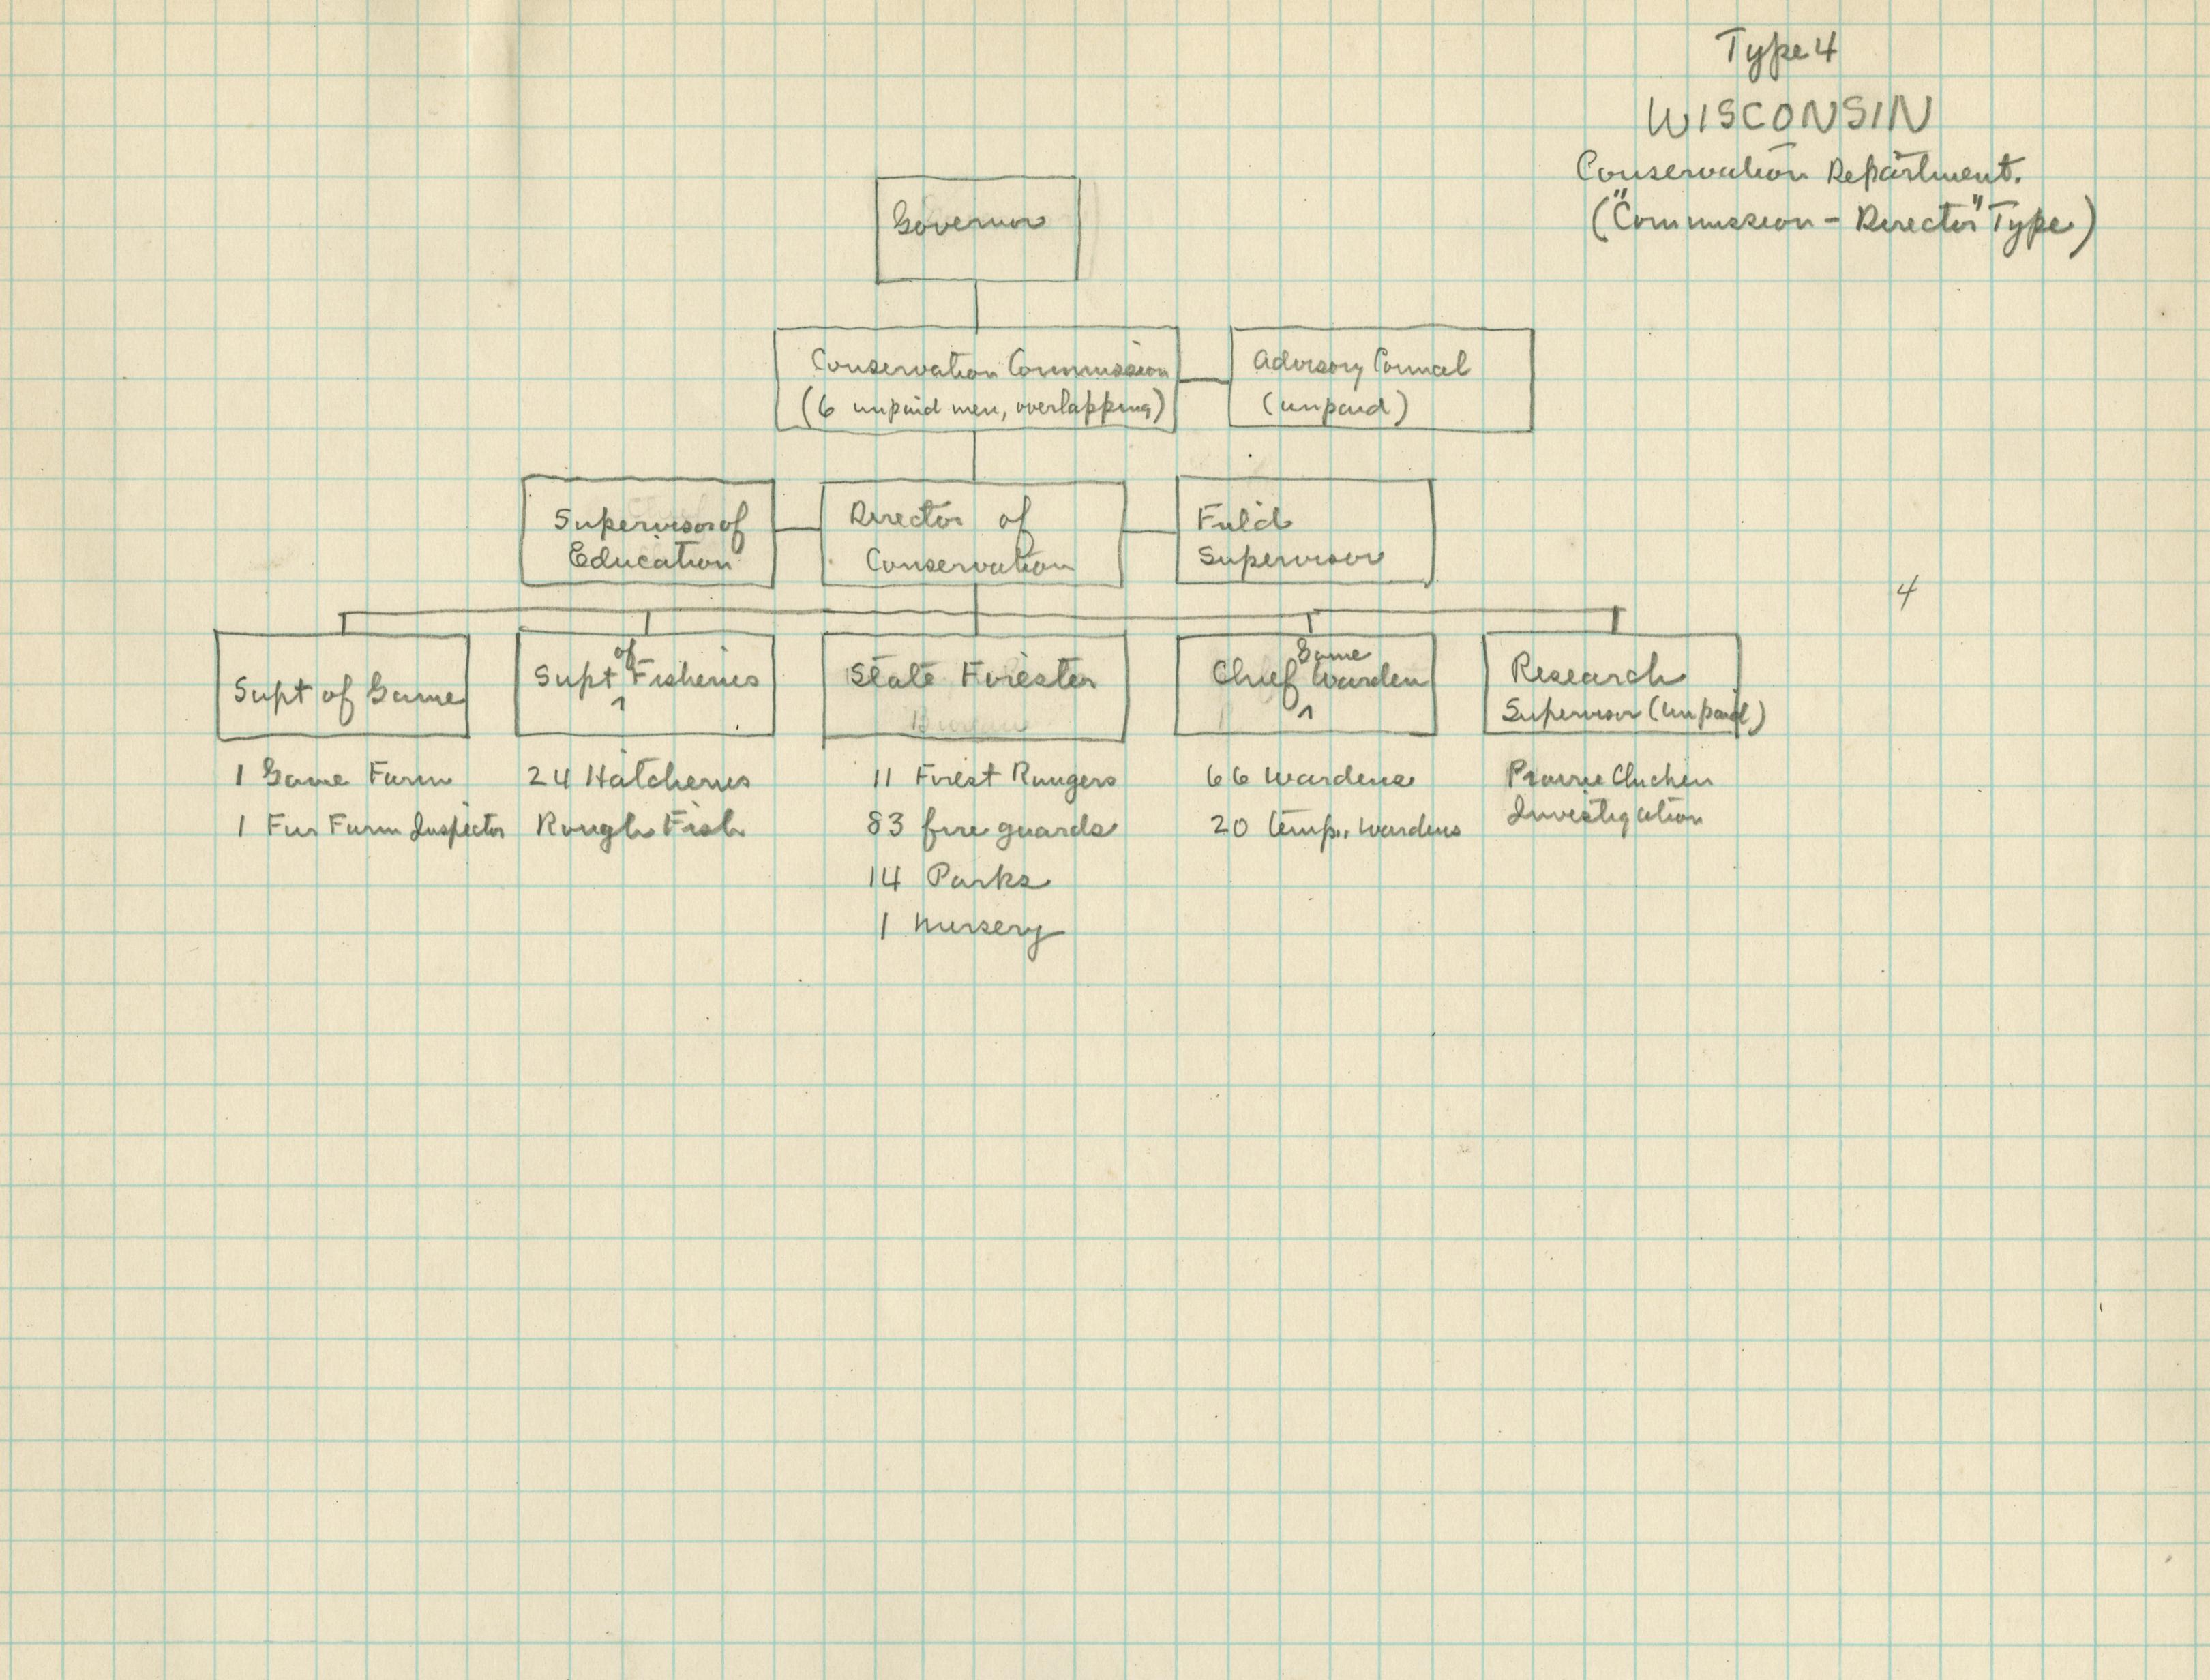 Type 4
WISCONSIN
Conservation Department.
("Commission - Director" Type)
Governor
Conservation Commission
(6 unpaid men, overlapping)
Advisory Council
(unpaid)
Supervisor of
Education
Director of
Conservation
Field
Supervisor
4
Supt of Game
Supt of Fisheries
State Forester
Bureau
Chief Game Warden
Research
Supervisor (unpaid)
1 Game Farm
1 Fur Farm Inspector
24 Hatcheries
Rough Fish
11 Forest Rangers
83 fire guards
14 Parks
1 Nursery
66 wardens
20 temp. wardens
Prairie Chicken
Investigation